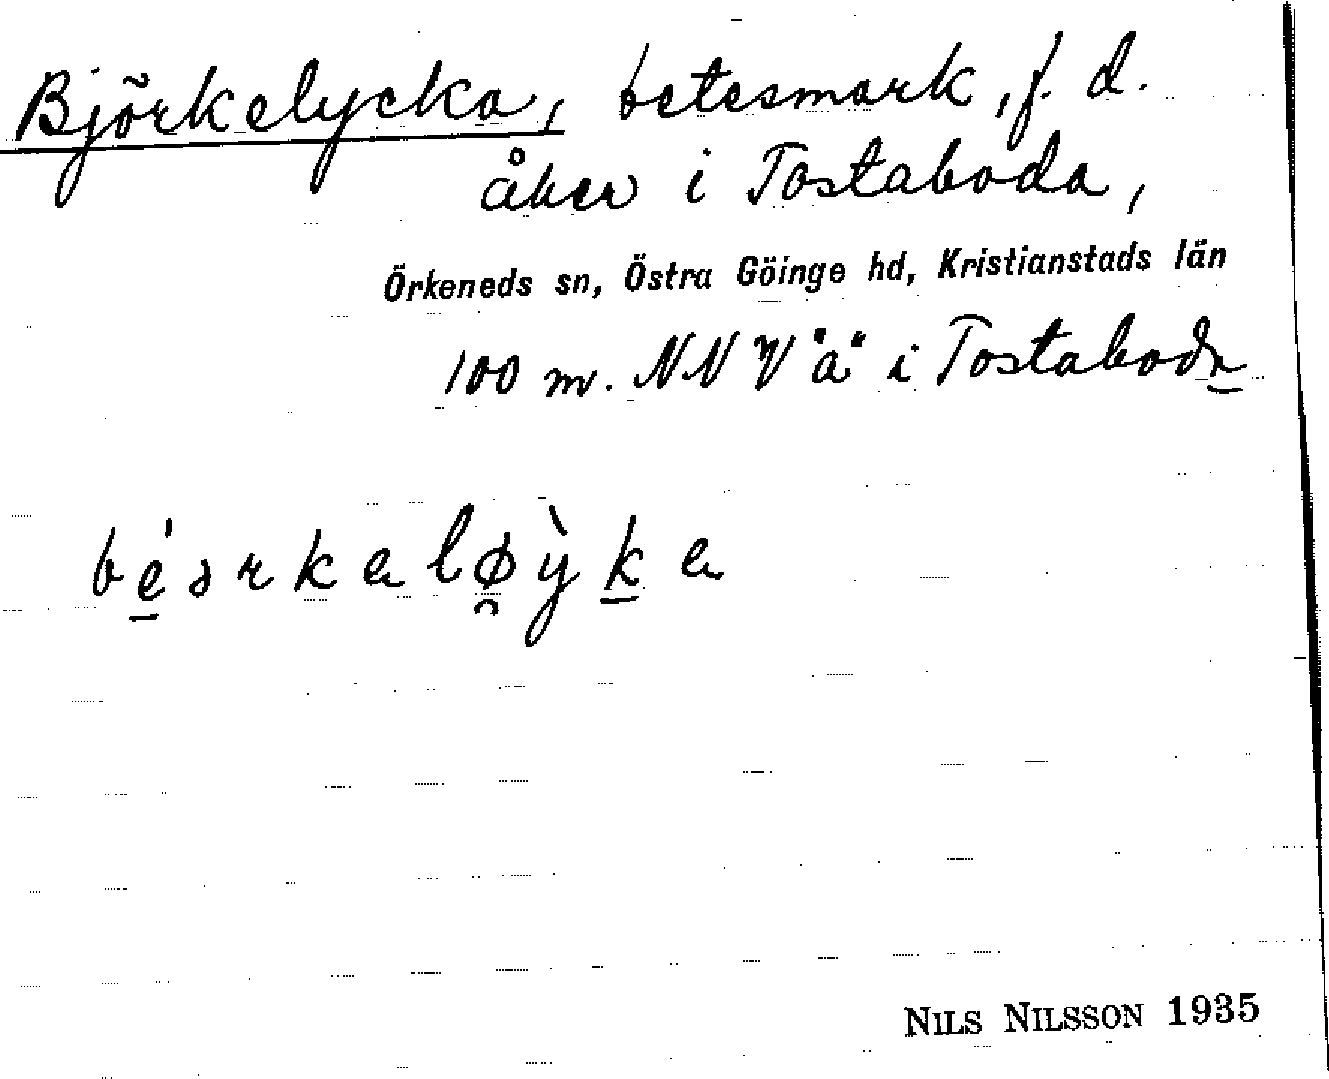 Björkelycka, betesmark, f. d.
åker i Tostaboda,
Örkeneds sn, Östra Göinge hd, Kristianstads län
100 m. NNV "a" i Tostaboda
NILS NILSSON 1935